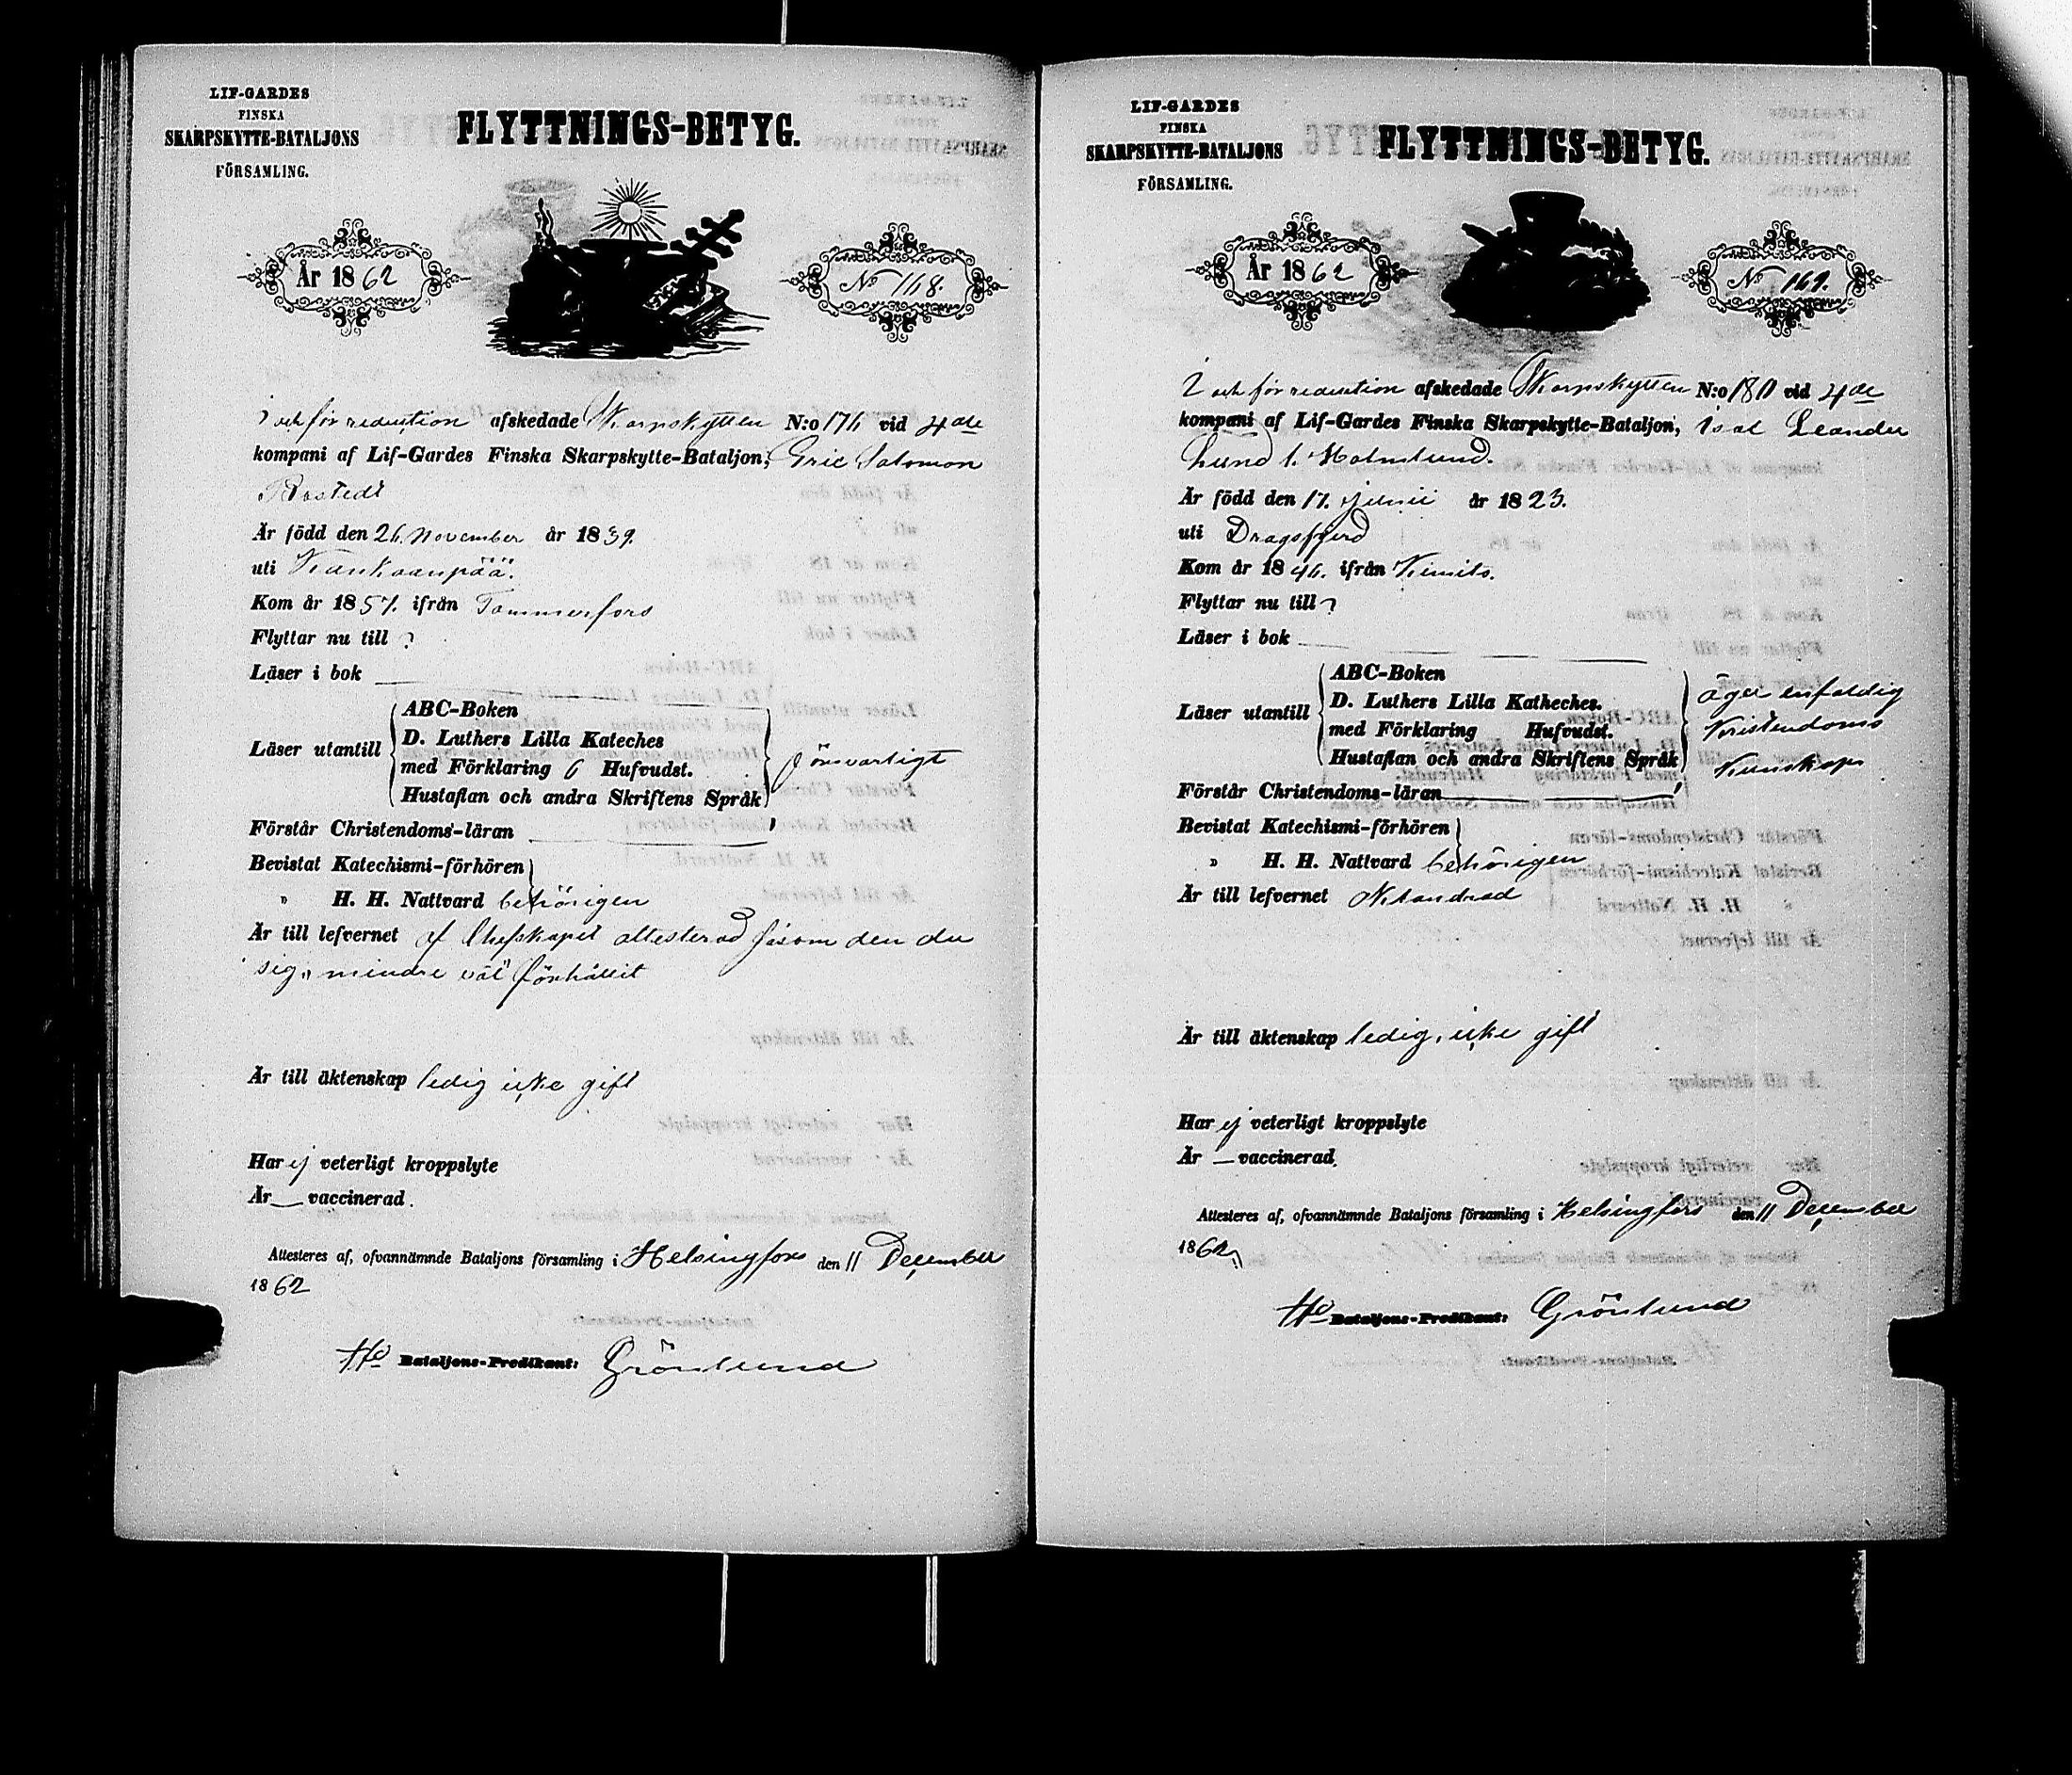 LIF-GARDES
FINSKA
SKARPSKYTTE-BATALJONS
FÖRSAMLING.
FLYTTNINGS-BETYG.
År 1862
No 168.
I och för reduction afskedade Skarpskytten N:o 176 vid 4de
kompani af Lif-Gardes Finska Skarpskytte-Bataljon, Eric Salomon
Rostedt
Är född den 26. November år 1839.
uti Kankaanpää.
Kom år 1857. ifrån Tammerfors
Flyttar nu till ?
Läser i bok
Läser utantill
ABC-Boken
D. Luthers Lilla Kateches
med Förklaring 6 Hufvudst.
Hustaflan och andra Skriftens Språk
försvarligt
Förstår Christendoms-läran
Bevistat Katechismi-förhören
" H. H. Nattvard behörigen
Är till lefvernet af Chefskapet attesterad såsom den der
sig "mindre väl" förhållit
Är till äktenskap ledig icke gift
Har ej veterligt kroppslyte
Är — vaccinerad.
Attesteres af, ofvannämnde Bataljons församling i Helsingfors den 11 December
1862
Bataljons-Predikant: Grönlund
LIF-GARDES
FINSKA
SKARPSKYTTE-BATALJONS
FÖRSAMLING.
FLYTTNINGS-BETYG.
År 1862
No 169.
I och för reduction afskedade Skarpskytten N:o 180 vid 4de
kompani af Lif-Gardes Finska Skarpskytte-Bataljon, Isac Leander
Lund l. Holmlund.
Är född den 17. Junii år 1823.
uti Dragsfjerd
Kom år 1846. ifrån Kimito.
Flyttar nu till ?
Läser i bok
Läser utantill
ABC-Boken
D. Luthers Lilla Katheches.
med Förklaring Hufvudst.
Hustaflan och andra Skriftens Språk
äger enfaldig
Kristendoms
Kunskap
Förstår Christendoms-läran
Bevistat Katechismi-förhören
" H. H. Nattvard behörigen
Är till lefvernet oklandrad
Är till äktenskap ledig, icke gift
Har ej veterligt kroppslyte
Är — vaccinerad.
Attesteres af, ofvannämnde Bataljons församling i Helsingfors den 11 December
1862
Bataljons-Predikant: Grönlund